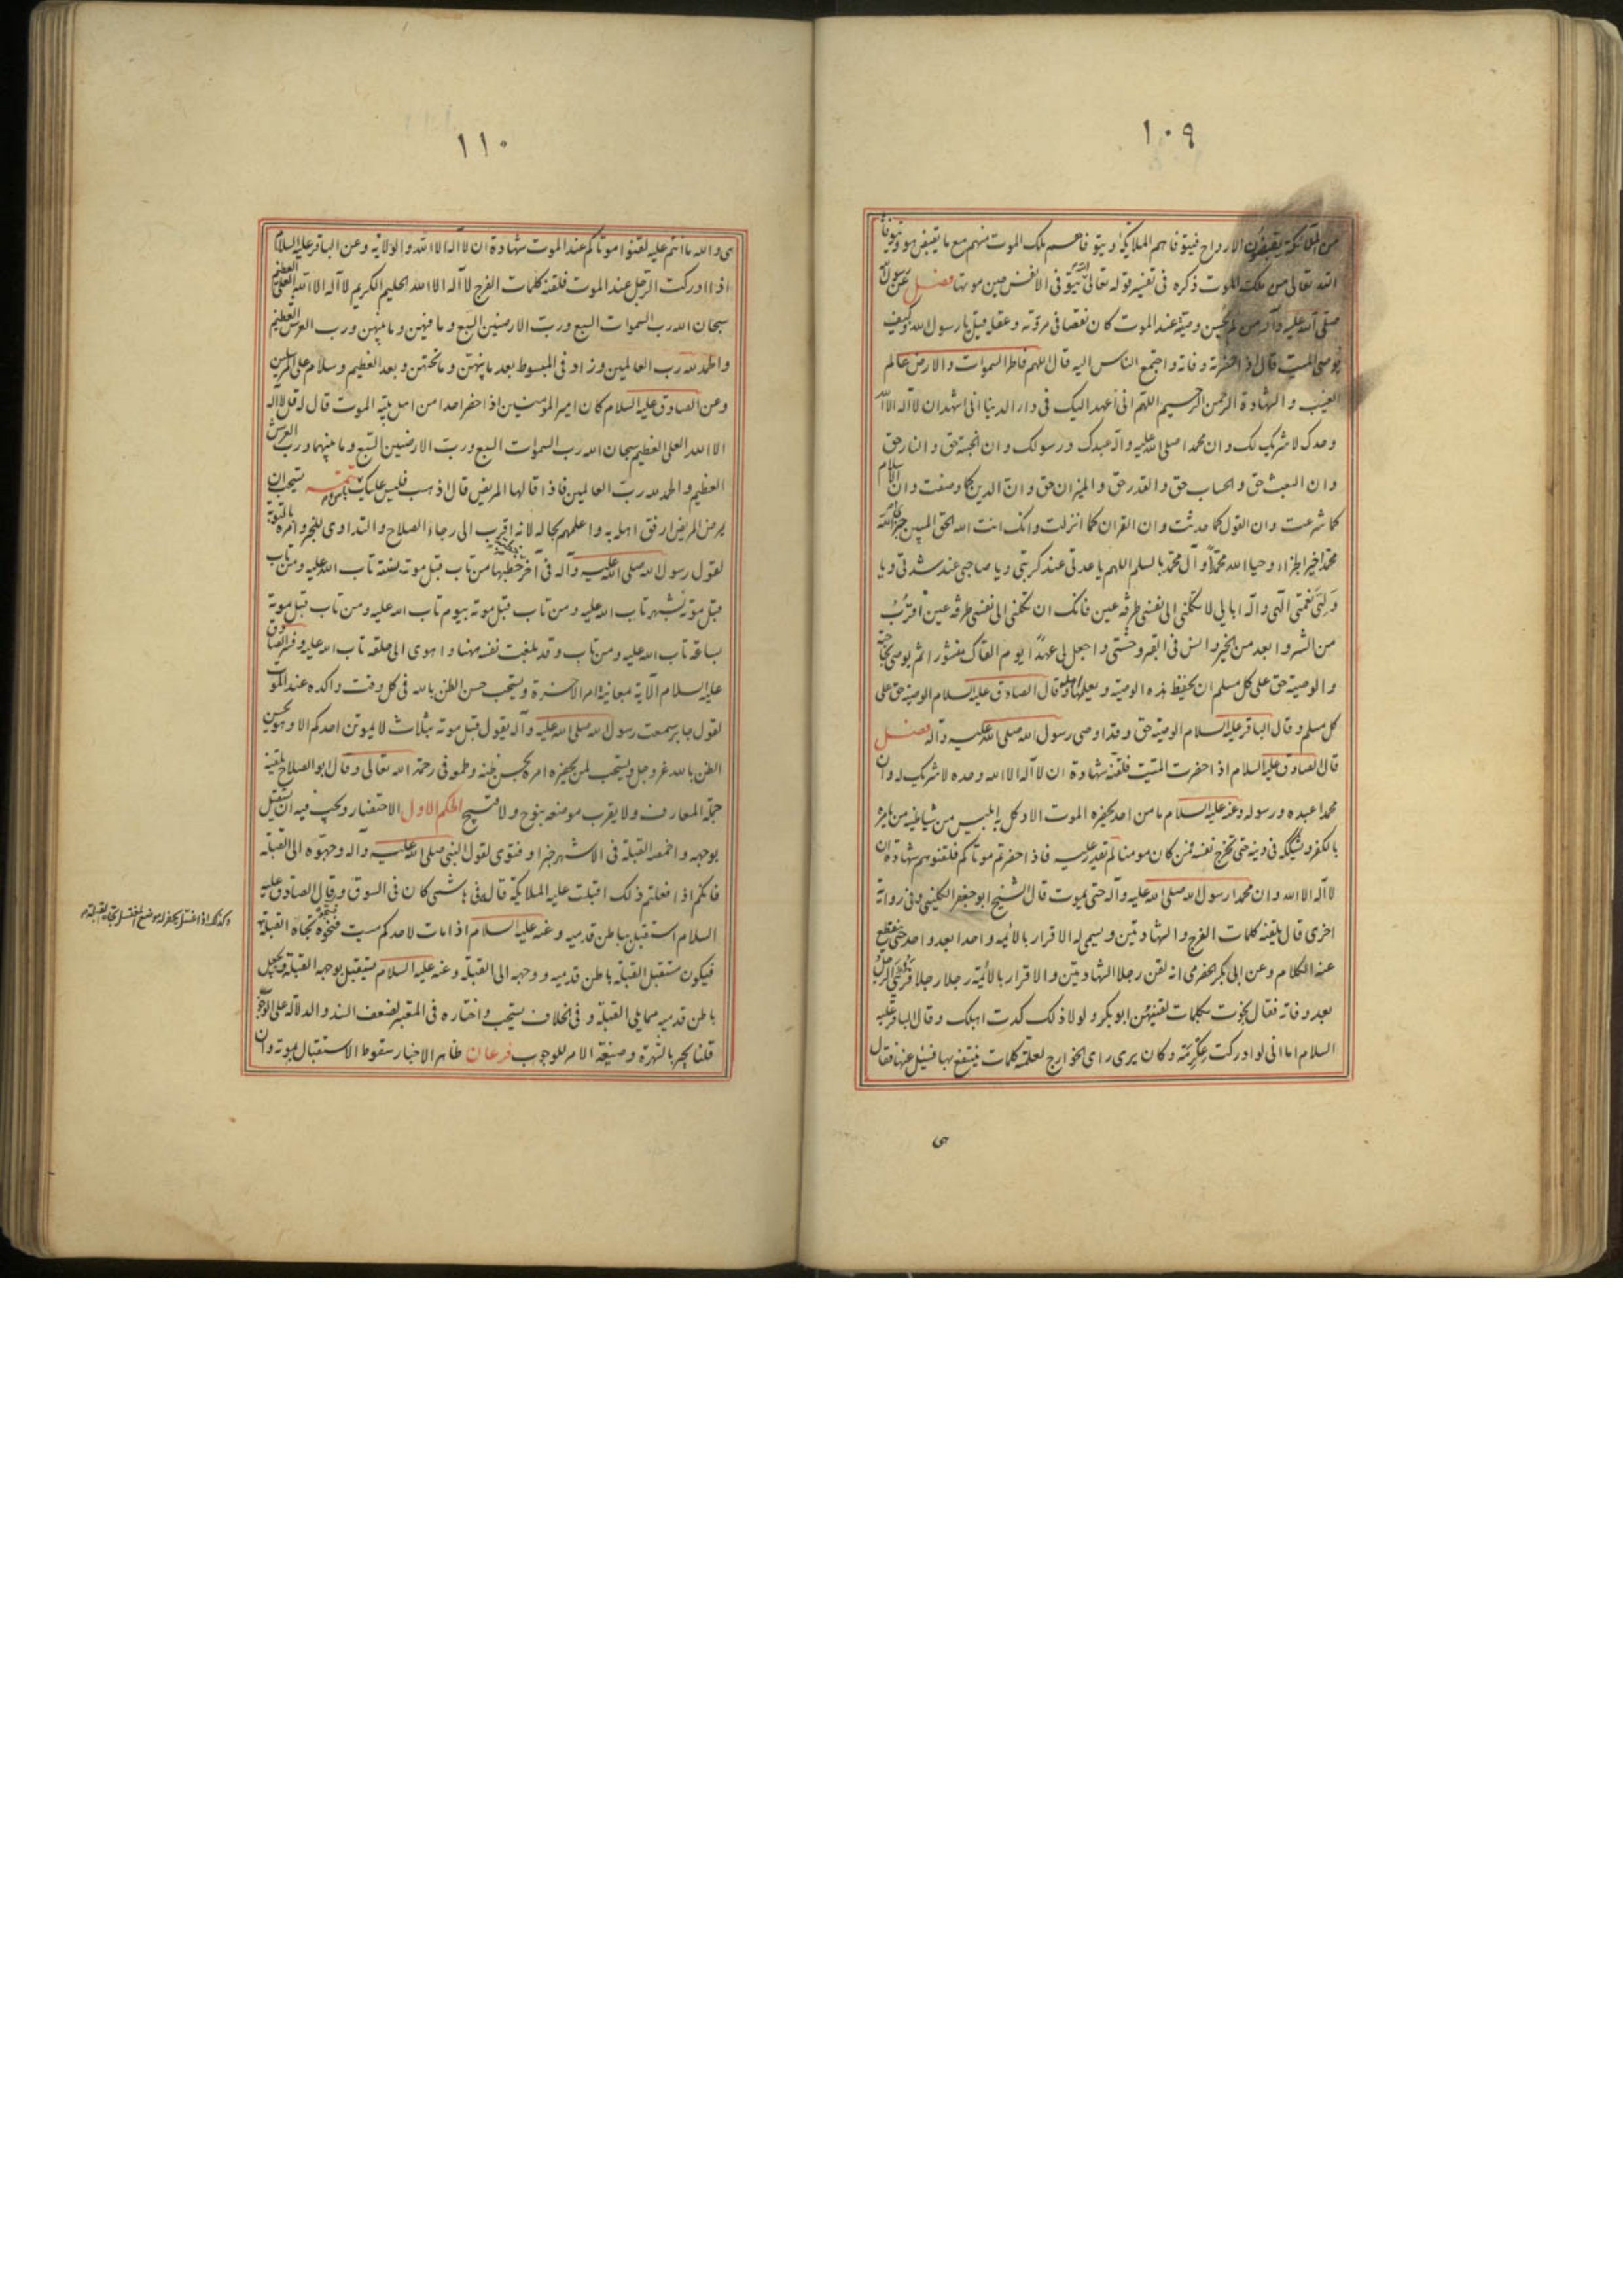 ١٠٩
من الملائكة يقبضون الارواح فيتوفاهم الملائكة ويتوفاهم ملك الموت منهم مع ما يقبض هو ويتوفاها
الله تعالى من ملك الموت ذكره في تفسير قوله تعالى الله يتوفى الانفس حين موتها فصل عن رسول الله
صلى الله عليه وآله من لم يحسن وصيته عند الموت كان نقصا في مروته وعقله قيل يا رسول الله وكيف
يوصي الميت قال اذا حضرته وفاته واجتمع الناس اليه قال اللهم فاطر السموات والارض عالم
الغيب والشهادة الرحمن الرحيم اللهم اني اعهد اليك في دار الدنيا اني اشهد ان لا اله الا انت
وحدك لا شريك لك وان محمدا صلى الله عليه وآله عبدك ورسولك وان الجنة حق والنار حق
وان البعث حق والحساب حق والقدر حق والميزان حق وان الدين كما وصفت وان الاسلام
كما شرعت وان القول كما حدثت وان القران كما انزلت وانك انت الله الحق المبين جزى الله
محمدا خير الجزاء وحيا الله محمدا وآل محمد بالسلم اللهم يا عدتي عند كربتي ويا صاحبي عند شدتي ويا
ولي نعمتي الهي واله ابايي لا تكلني الى نفسي طرفة عين فانك ان تكلني الى نفسي طرفة عين اقرب
من الشر وابعد من الخير وانس في القبر وحشتي واجعل لي عهدا يوم القاك منشورا ثم يوصي بحاجته
والوصية حق على كل مسلم ان يحفظ هذه الوصية ويعلمها وقال الصادق عليه السلام الوصية حق على
كل مسلم وقال الباقر عليه السلام الوصية حق وقد اوصى رسول الله صلى الله عليه وآله فصل
قال الصادق عليه السلام اذا حضرت الميت فلقنه شهادة ان لا اله الا الله وحده لا شريك له وان
محمدا عبده ورسوله وعنه عليه السلام ما من احد يحضره الموت الا وكل به ابليس من شياطينه من يامره
بالكفر ويشككه في دينه حتى تخرج نفسه فمن كان مومنا لم يقدر عليه فاذا حضرتم موتاكم فلقنوهم شهادة ان
لا اله الا الله وان محمدا رسول الله صلى الله عليه وآله حتى يموت قال الشيخ ابو جعفر الكليني وفي رواية
اخرى قال يلقنه كلمات الفرج والشهادتين ويسمي له الاقرار بالائمه واحدا بعد واحد حتى ينقطع
عنه الكلام وعن ابي بكر الحضرمي انه لقن رجلا الشهادتين والاقرار بالائمة رجلا رجلا فرئي الرجل
بعد وفاته فقال نجوت بكلمات لقنيهن ابو بكر ولولا ذلك كدت اهلك وقال الباقر عليه
السلام اما اني لو ادركت عكرمة وكان يرى راى الخوارج لعلمته كلمات ينتفع بها فسئل عنها فقال
هى
١١٠
هى والله ما انتم عليه لقنوا موتاكم عند الموت شهادة ان لا اله الا الله والولاية وعن الباقر عليه السلام
اذا ادركت الرجل عند الموت فلقنه كلمات الفرج لا اله الا الله الحليم الكريم لا اله الا الله العلي العظيم
سبحان الله رب السموات السبع ورب الارضين السبع وما فيهن وما بينهن ورب العرش العظيم
والحمد لله رب العالمين وزاد في المبسوط بعد ما بينهن وما تحتهن وبعد العظيم وسلام على المرسلين
وعن الصادق عليه السلام كان امير المومنين اذا حضر احدا من اهل بيته الموت قال له قل لا اله
الا الله العلي العظيم سبحان الله رب السموات السبع ورب الارضين السبع وما بينهما ورب العرش
العظيم والحمد لله رب العالمين فاذا قالها المريض قال اذهب فليس عليك باس تتمه يستحب ان
يمرض المريض ارفق اهله به واعلمهم بحاله لانه اقرب الى رجاء الصلاح والتداوى للخبر وامره بالتوبة
لقول رسول الله صلى الله عليه وآله في آخر خطبة خطبها من تاب قبل موته بسنة تاب الله عليه ومن تاب
قبل موته بشهر تاب الله عليه ومن تاب قبل موته بيوم تاب الله عليه ومن تاب قبل موته
بساعة تاب الله عليه ومن تاب وقد بلغت نفسه ههنا واهوى الى حلقه تاب الله عليه وفسر الصادق
عليه السلام الآية بمعاينة امر الاخرة ويستحب حسن الظن بالله في كل وقت واكده عند الموت
لقول جابر سمعت رسول الله صلى الله عليه وآله يقول قبل موته بثلاث لا يموتن احدكم الا وهو يحسن
الظن بالله عز وجل ويستحب لمن يحضره امره بحسن ظنه وطمعه في رحمة الله تعالى وقال ابو الصلاح يلقنه
جملة المعارف ولا يقرب موضعه بنوح ولا قبيح الحكم الاول الاحتضار ويجب فيه ان يستقبل
بوجهه واخمصه القبلة في الاشهر خبرا وفتوى لقول النبي صلى الله عليه وآله وجهوه الى القبلة
فانكم اذا فعلتم ذلك اقبلت عليه الملائكة قاله في هاشمي كان في السوق وقال الصادق عليه
السلام استقبل بباطن قدميه وعنه عليه السلام اذا مات لاحدكم ميت فسجوه تجاه القبلة
فيكون مستقبل القبلة بباطن قدميه ووجهه الى القبلة وعنه عليه السلام يستقبل بوجهه القبلة ويجعل
باطن قدميه مما يلي القبلة وفي الخلاف يستحب واختاره في المعتبر لضعف السند والدلالة على الوجوب
قلنا يجبر بالشهرة وصيغة الامر للوجوب فرعان ظاهر الاخبار سقوط الاستقبال بموته وان
وكذلك اذا غسل يحفر له موضع المغتسل تجاه القبلة